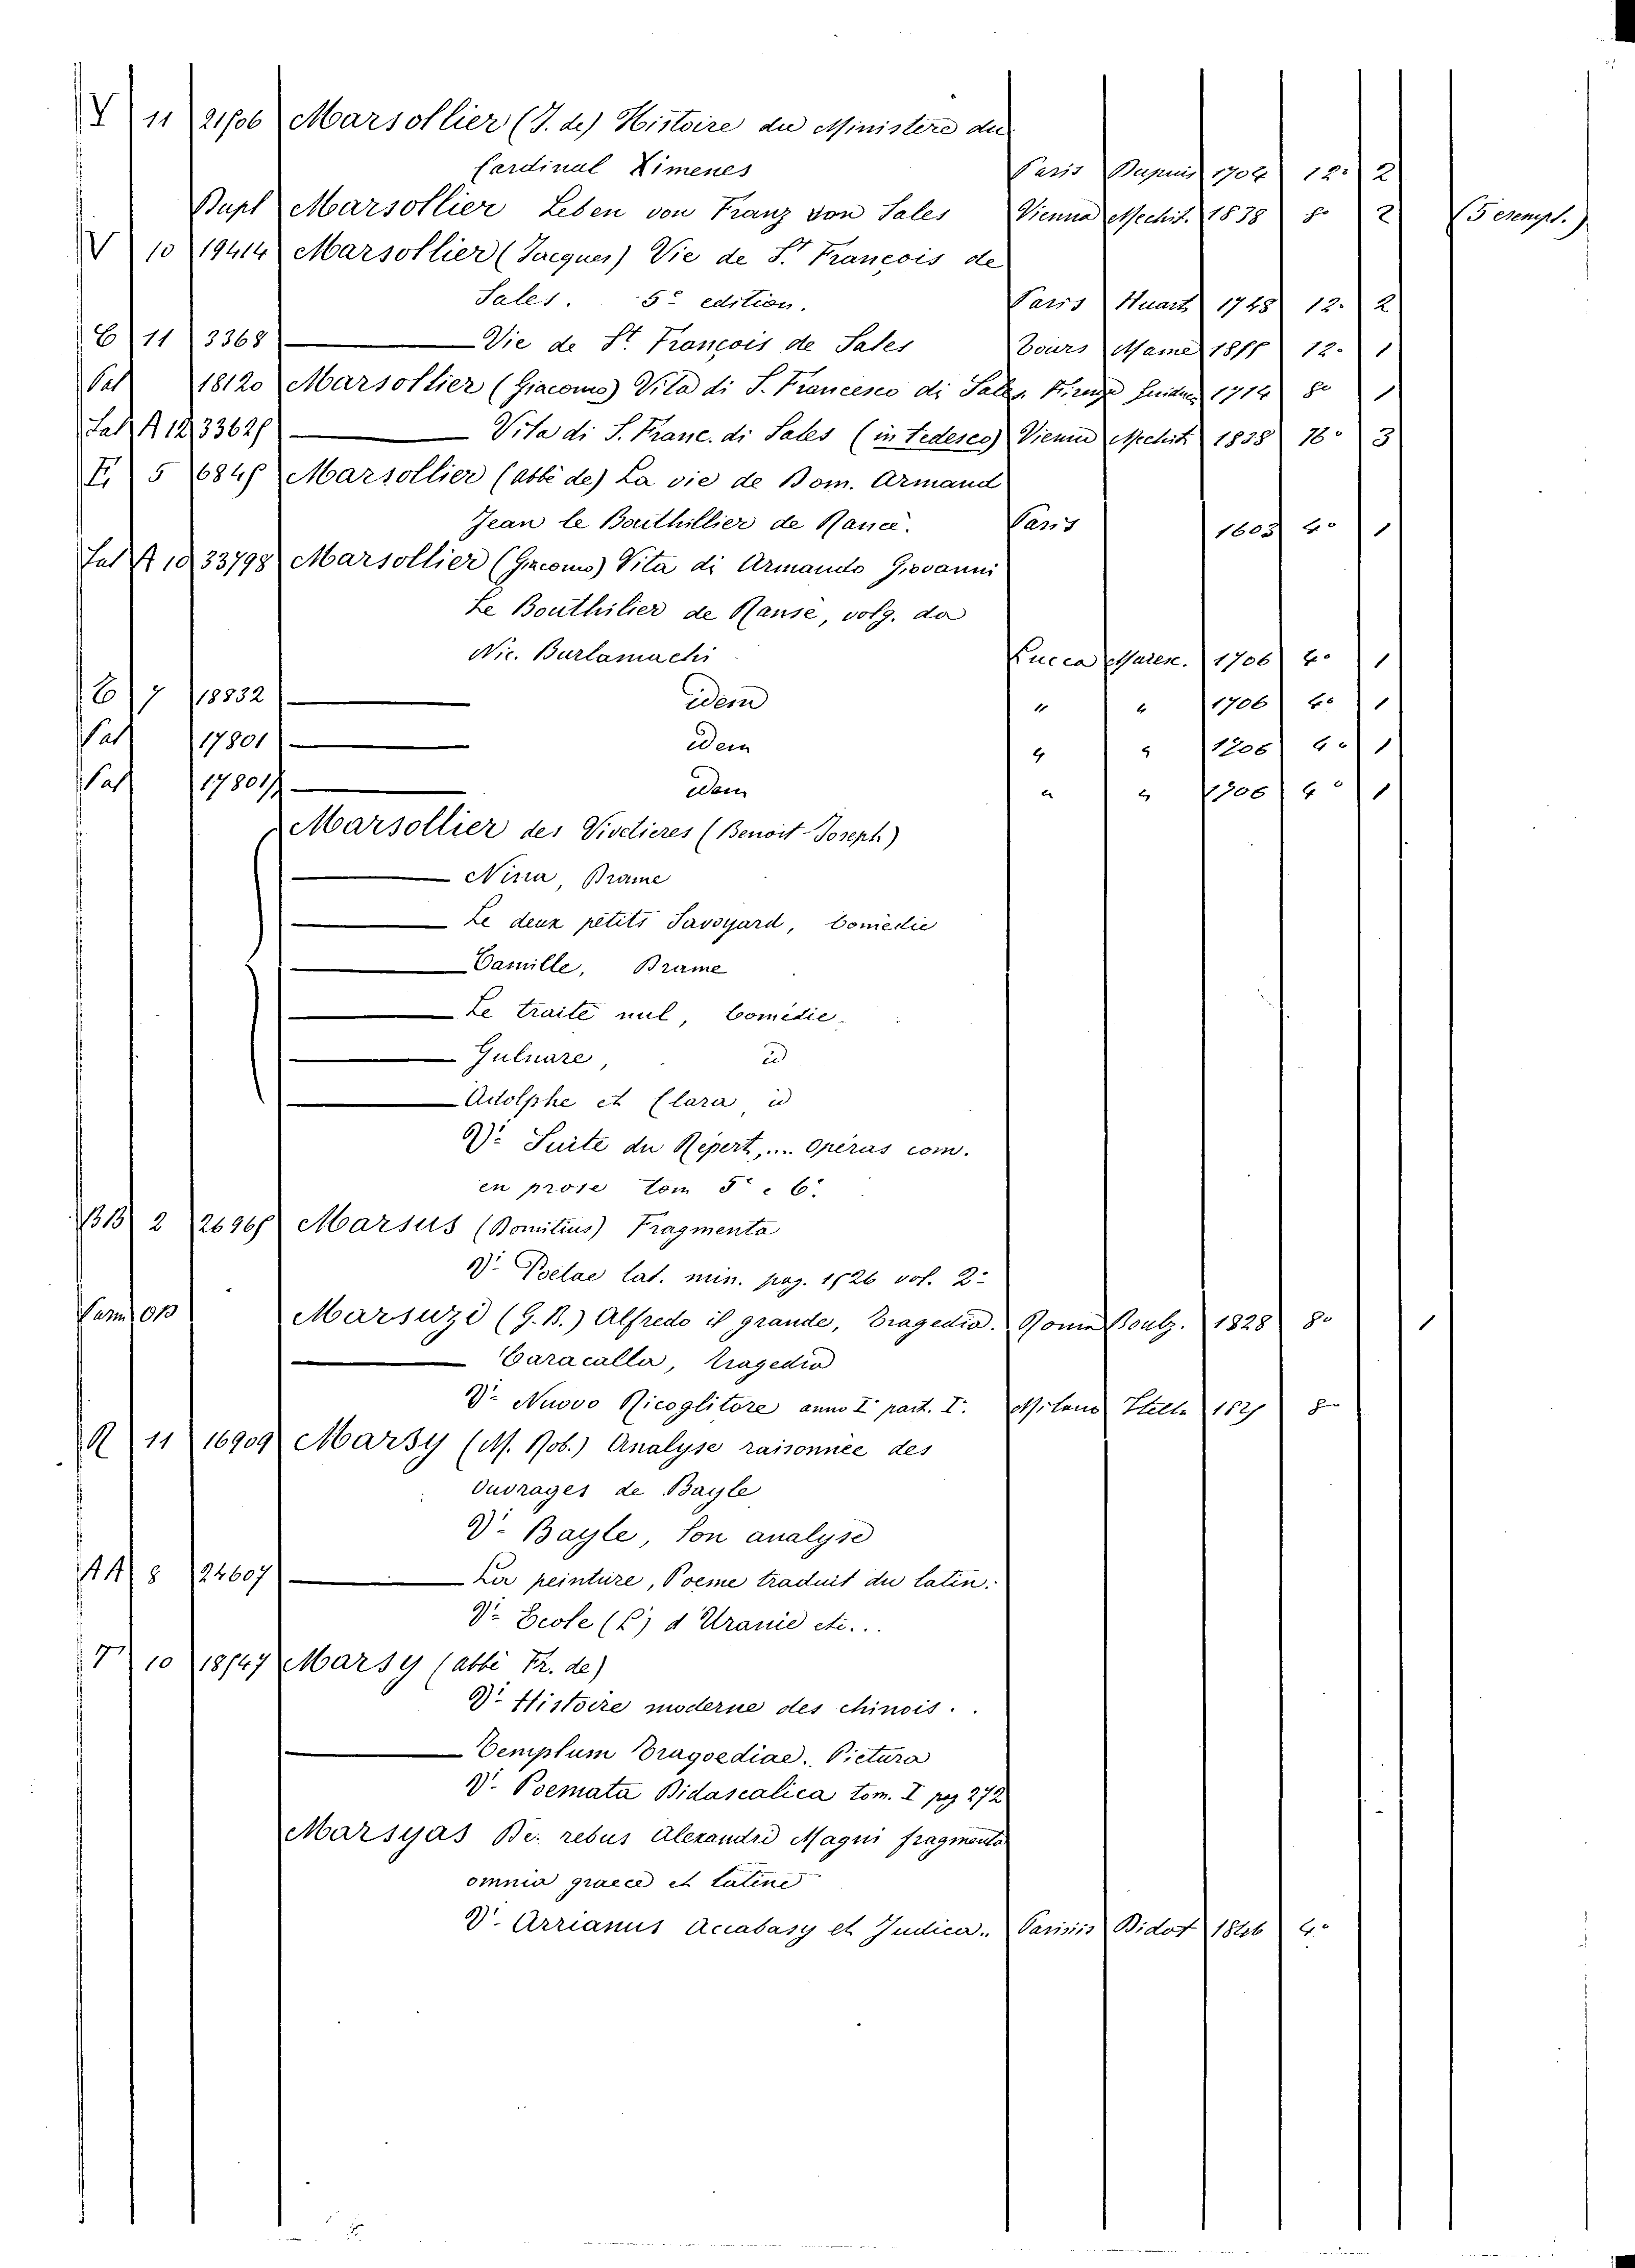 Y 11 21506 Marsollier (J. de) Histoire du Ministere du
Cardinal Ximenes Paris Dupuis 1704 12° 2
Dupl Marsollier Leben von Franz von Sales Vienna Mechit. 1838 8° 2 (5 esempl.)
V 10 19414 Marsollier (Jacques) Vie de St. François de
Sales. 5e edition. Paris Huart 1748 12° 2
C 11 3368 — Vie de St. François de Sales Tours Mame 12° 1
Sal 18120 Marsollier (Giacomo) Vita di S. Francesco di Sales. Firenze 1714 8° 1
Sal A 12 33625 — Vita di S. Franc. di Sales (in tedesco) Vienna Mechit 1838 16° 3
5 6845 Marsollier (abbé de) La vie de Dom. Armand
Jean le Bouthillier de Rancé. Paris 1603 4° 1
Sal A 10 33798 Marsollier (Giacomo) Vita di Armando Giovanni
Le Bouthilier de Ranse, volg. da
Nic. Burlamachi Lucca Maresc. 1706 4° 1
C 7 18832 — idem " " 1706 4° 1
Sal 17801 — idem " " 1706 4° 1
Sal — idem " " 1706 4° 1
Marsollier des Vivetieres (Benoit-Joseph)
— Nina, Drame
— Le deux petits Savoyard, Comédie
— Camille, Drame
— Le traité nul, Comédie
— Gulnare, id
— Adolphe et Clara, id
V. Suite du Répert,... opéras com.
en prose tom 5° e 6°
BB 2 26965 Marsus (Domitius) Fragmenta
V. Poetae lat. min. pag. 1526 vol. 2°
Marsuzi (G. B.) Alfredo il grande, Tragedia. Roma Boulz. 1828 8° 1
— Caracalla, tragedia
V. Nuovo Ricoglitore anno I part. I. Milano Stella 1825 8°
R 11 16909 Marsy (M. Rob.) Analyse raisonnée des
Ouvrages de Bayle
V. Bayle, Son analyse
AA 8 24607 — La peinture, Poeme traduit du latin.
V. Ecole (L') d'Uranie etc...
T 10 18547 Marsy (abbé Fr. de)
V. Histoire moderne des chinois..
— Templum Tragoediae. Pictura
V. Poemata Didascalica tom. I pag 272
Marsyas De rebus Alexandri Magni fragmenta
omnia graece et latine
V. Arrianus Anabasy et Indica. Parisiis Didot 1846 4°